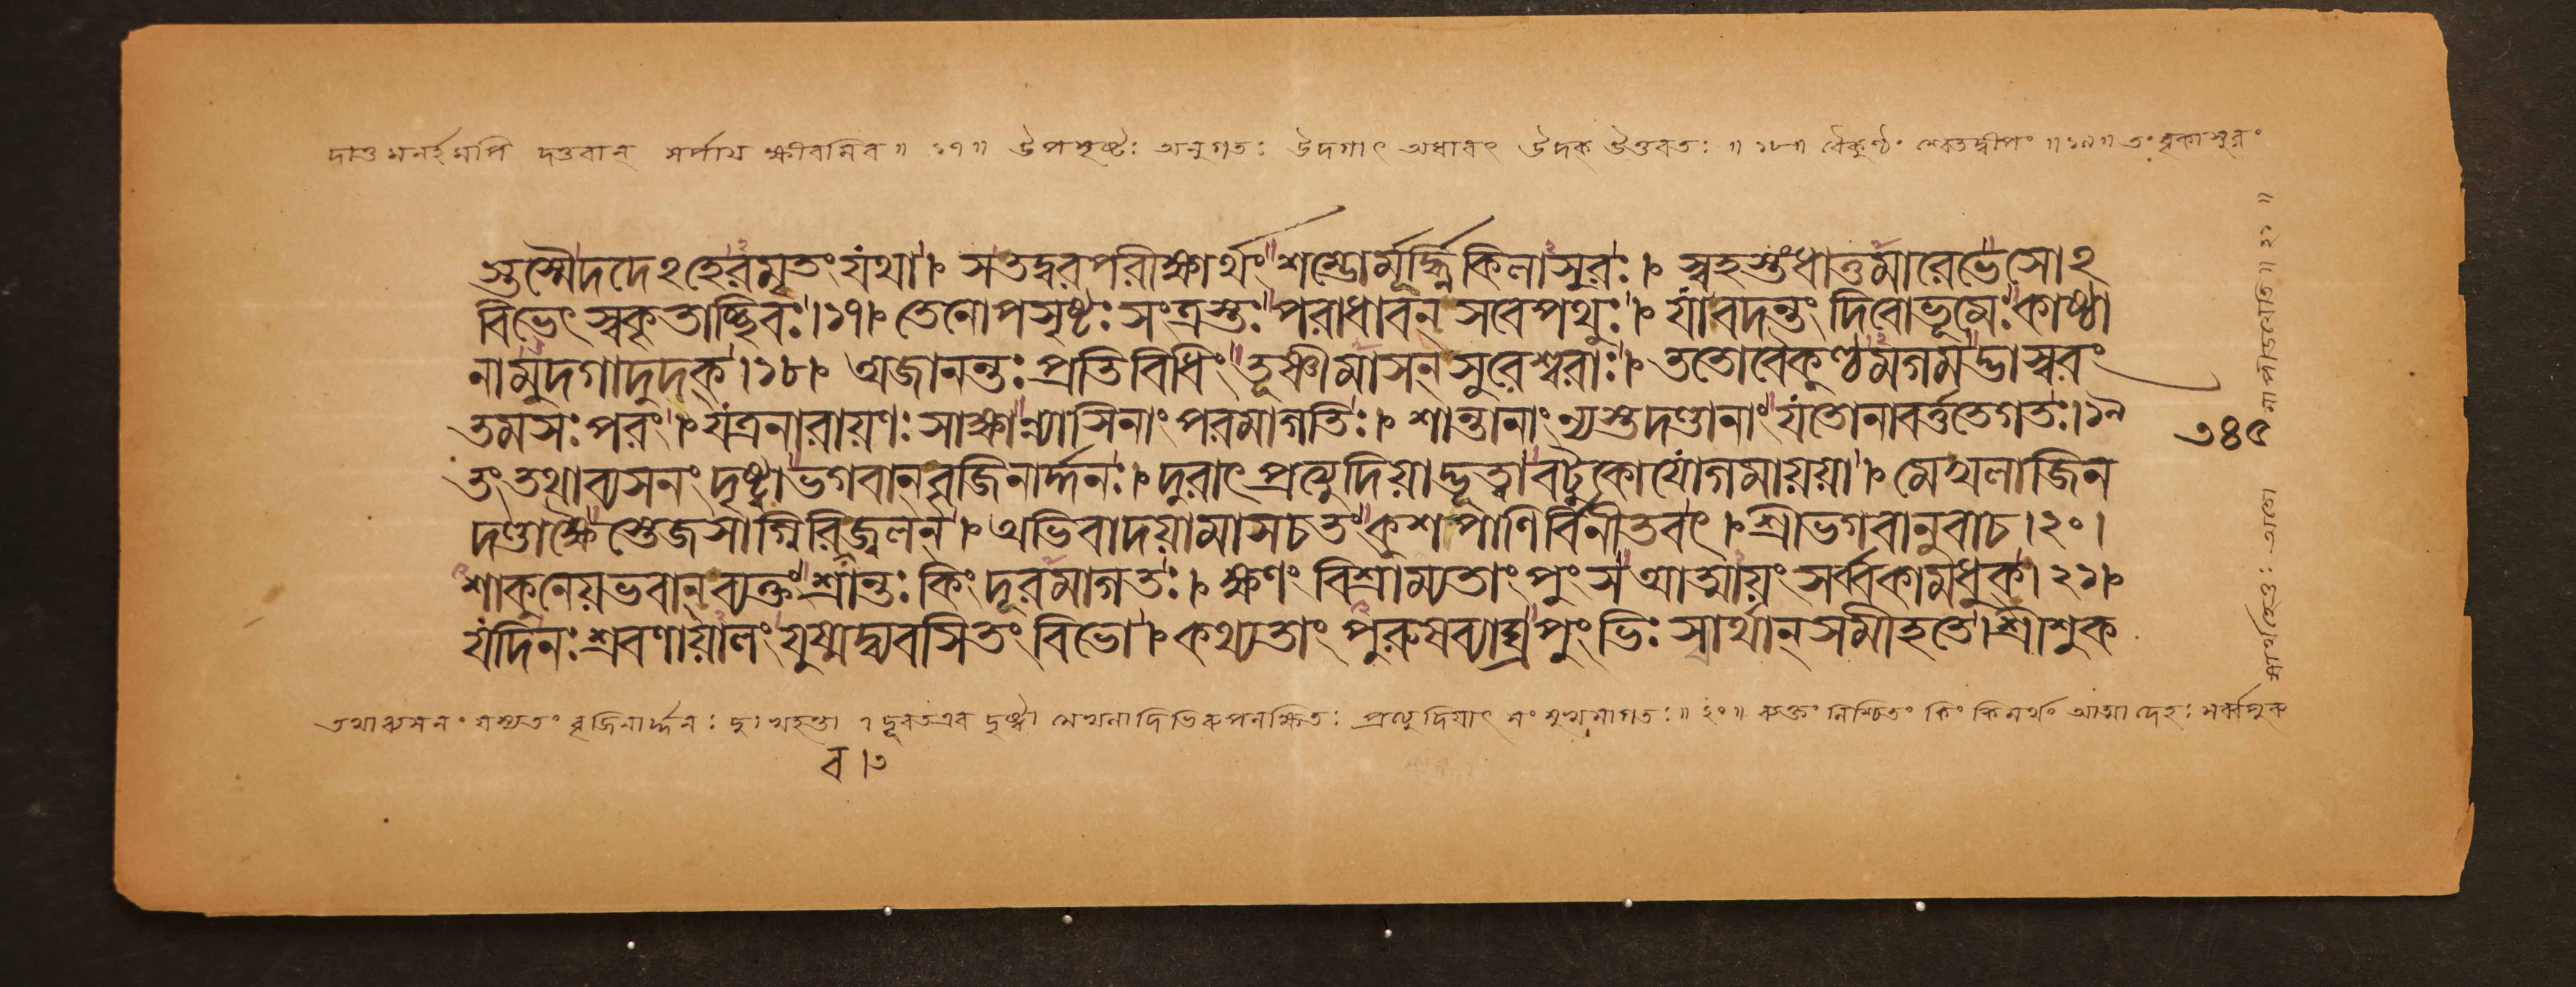 দাতুমনর্হমপি দত্তবান্ সর্পায় ক্ষীরমিব॥ ১৭॥ উপসৃষ্টঃ অনুগতঃ উদগাৎ অধাবৎ উদক্ উত্তরতঃ॥ ১৮॥ বৈকুণ্ঠং শ্বেতদ্বীপং॥ ১৯॥ তং বৃকাসুরং
স্তস্মৈদদেঽহেরমৃতং যথা।ঃ সতদ্বরপরীক্ষার্থং শম্ভোর্মূর্দ্ধ্নিকিলাসুরঃ।ঃ স্বহস্তংধাতুমারেভেসোঽ
বিভেৎ স্বকৃতাচ্ছিবঃ।১৭।ঃ তেনোপসৃষ্টঃ সংত্রস্তঃ পরাধাবন্ সবেপথুঃ।ঃ যাবদন্তং দিবোভূমেঃ কাষ্ঠা
নামুদগাদুদক্।১৮।ঃ অজানন্তঃ প্রতিবিধিং তূষ্ণীমাসন্ সুরেশ্বরাঃ।ঃ ততোবৈকুণ্ঠমগমদ্ভাস্বরং
তমসঃ পরং।ঃ যত্রনারায়ণঃ সাক্ষান্ন্যাসিনাং পরমাগতিঃ।ঃ শান্তানাং ন্যস্তদণ্ডানাং যতোনাবর্ত্ততেগতঃ।১৯
৩৪৫
তং তথাব্যসনং দৃষ্ট্বাভগবান্ বৃজিনার্দ্দনঃ।ঃ দুরাৎ প্রত্যুদিয়াদ্ভূত্বাবটুকোযোগমায়য়া।ঃ মেখলাজিন
দণ্ডাক্ষৈস্তেজসাগ্নিরিবজ্বলন্।ঃ অভিবাদয়ামাসচতং কুশপাণির্বিনীতবৎ।ঃ শ্রীভগবানুবাচ।২০।
শাকুনেয়ভবান্ ব্যক্তং শ্রান্তঃ কিং দূরমাগতঃ।ঃ ক্ষণং বিশ্রাম্যতাং পুংস আত্মায়ং সর্ব্বকামধুক।২১।ঃ
যদিনঃ শ্রবণায়ালং যুষ্মদ্ব্যবসিতং বিভো।ঃ কথ্যতাং পুরুষব্যাঘ্রপুংভিঃ স্বার্থান্ সমীহতে।শ্রীশুক
তথাব্যসনং বৃজিনার্দ্দনঃ দুঃখহন্তা দূরতএব দৃষ্ট্বা মেখলাদিভিরুপলক্ষিতঃ প্রত্যুদিয়াৎ সংমুখমাগতঃ॥ ২০॥ ব্যক্তং নিশ্চিতং কিং কিমর্থং আত্মা দেহঃ সর্ব্বধুক
ব।৩